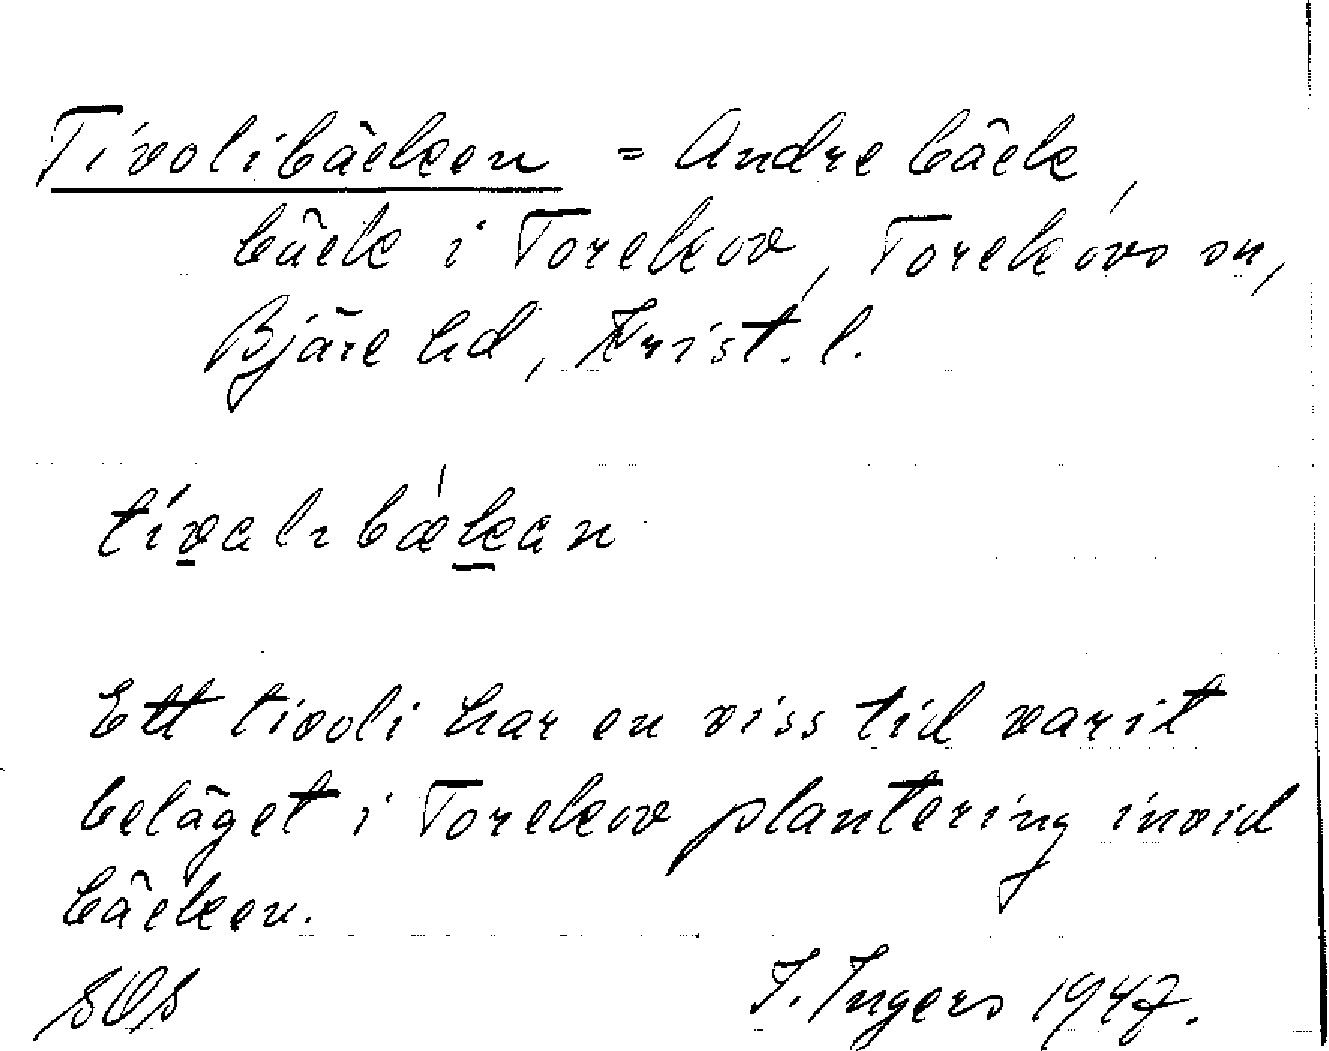 Tivolibäcken = Andre bäck,
bäck i Torekov, Torekovs sn,
Bjäre hd, Krist. l.
Ett tivoli har en viss tid varit
beläget i Torekov plantering invid
bäcken.
I. Ingers 1947.